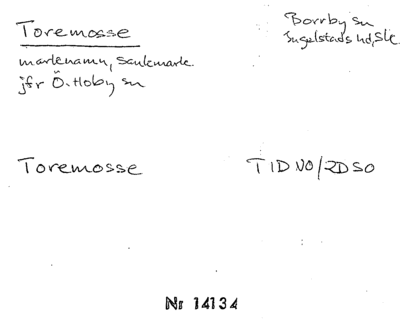 Toremosse
Borrby sn
Ingelstads hd, Sk.
marknamn, sankmark.
jfr Ö. Hoby sn
Toremosse
TIDNO/2DSO
Nr 14134